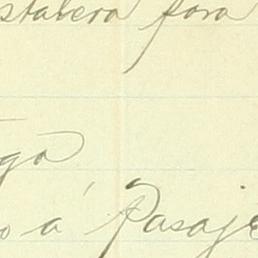 stalera fora
ga
o a Pasaje